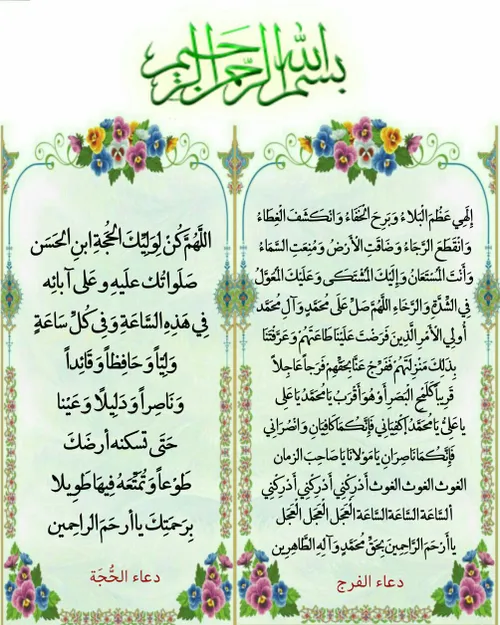 بسم الله الرحمن الرحيم
إِلَهِي عَظُمَ الْبَلَاءُ وَبَرِحَ الْخَفَاءُ وَانْكَشَفَ الْغِطَاءُ
وَانْقَطَعَ الرَّجَاءُ وَضَاقَتِ الْأَرْضُ وَمُنِعَتِ السَّمَاءُ
وَأَنْتَ الْمُسْتَعَانُ وَإِلَيْكَ الْمُشْتَكَى وَعَلَيْكَ الْمُعَوَّلُ
فِي الشِّدَّةِ وَالرَّخَاءِ اللَّهُمَّ صَلِّ عَلَى مُحَمَّدٍ وَآلِ مُحَمَّدٍ
أُولِي الْأَمْرِ الَّذِينَ فَرَضْتَ عَلَيْنَا طَاعَتَهُمْ وَعَرَّفْتَنَا
بِذَلِكَ مَنْزِلَتَهُمْ فَفَرِّجْ عَنَّا بِحَقِّهِمْ فَرَجاً عَاجِلاً
قَرِيباً كَلَمْحِ الْبَصَرِ أَوْ هُوَ أَقْرَبُ يَا مُحَمَّدُ يَا عَلِي
يا عَلِيُّ يَا مُحَمَّدُ اكْفِيَانِي فَإِنَّكُمَا كَافِيَانِ وَانْصُرَانِي
فَإِنَّكُمَا نَاصِرَانِ يَا مَوْلَانَا يَا صَاحِبَ الزمان
الغوث الغوث الغوث أَدْرِكْنِي أَدْرِكْنِي أَدْرِكْنِي
السَّاعَةَ السَّاعَةَ السَّاعَةَ الْعَجَلَ الْعَجَلَ الْعَجَلَ
يا أَرْحَمَ الرَّاحِمِينَ بِحَقِّ مُحَمَّدٍ وَآلِهِ الطَّاهِرِين
دعاء الفرج
اللَّهُمَّ كُنْ لِوَلِيِّكَ الْحُجَّةِ ابنِ الْحَسَن
صَلَواتُكَ علَيهِ وعَلى آبائِه
فِي هَذِهِ السَّاعَةِ وَفِي كُلِّ سَاعَةٍ
وَلِيّاً وَحَافِظاً وَقَائِداً
وَنَاصِراً وَدَلِيلًا وَعَيْنا
حَتَى تسكنه أرضَكَ
طَوْعاً وَتُمَتِّعَهُ فِيهَا طَوِيلا
بِرَحمَتِكَ يا أرحَمَ الراحِمين
دعاء الحُّجَة